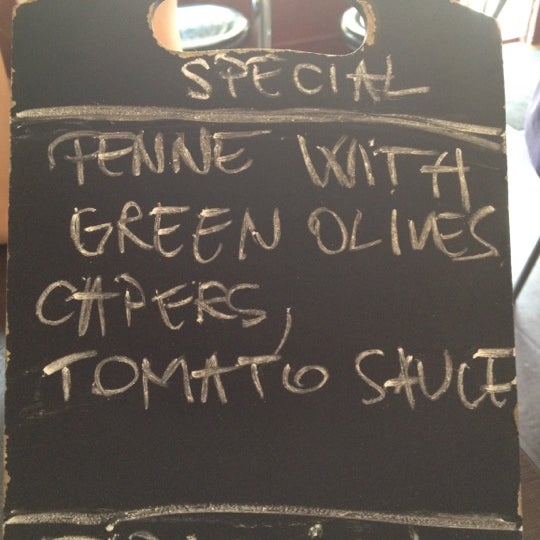 SPECIAL
PENNE WITH
GREEN OLIVES
CAPERS,
TOMATO SAUCE